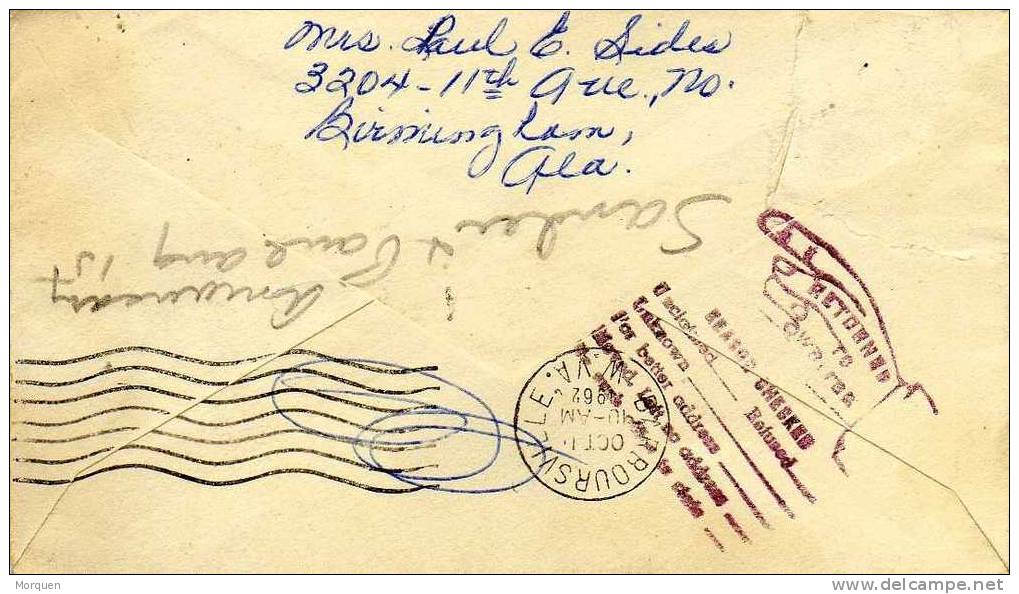 Mrs. Paul E. Sides
3204-11th Ave., No.
Birmingham,
Ala.
Sander & Paul
aug 15
RETURNED
TO
REASON CHECKED
Refused
Unclaimed
Unknown
For better address
Moved, left no address
BARBOURSVILLE. W.VA.
OCT 1
-AM
1962
Morquen
delcampe.net